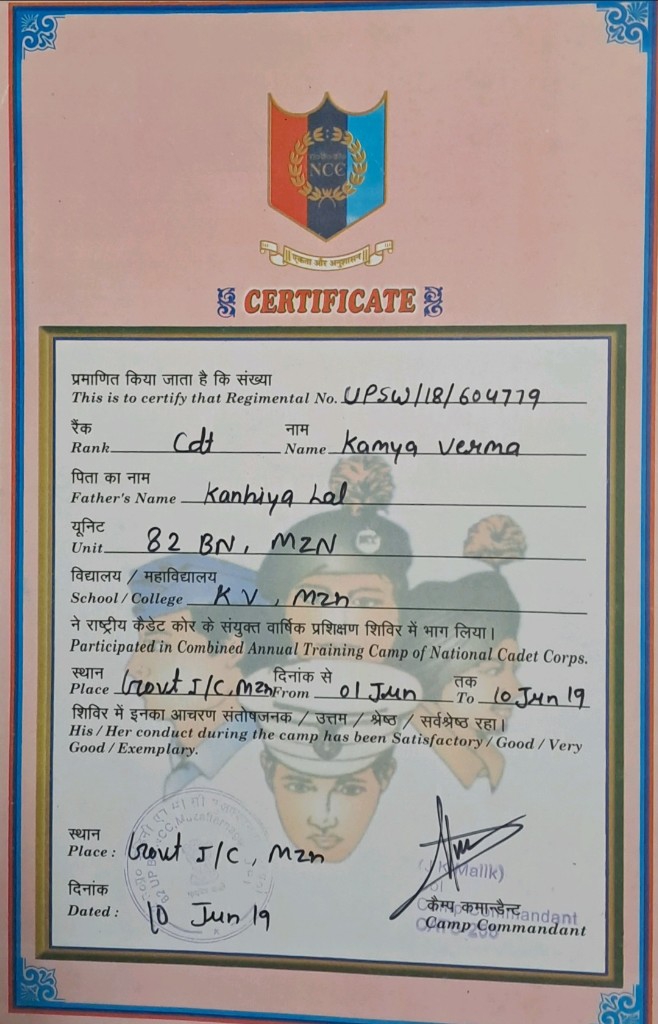 NCC
एकता और अनुशासन
CERTIFICATE
प्रमाणित किया जाता है कि संख्या
This is to certify that Regimental No. UPSW/18/604779
रैंक नाम
Rank Cdt Name Kamya Verma
पिता का नाम
Father's Name Kanhiya Lal
यूनिट
Unit 82 BN, MZN
विद्यालय / महाविद्यालय
School / College K V, Mzn
ने राष्ट्रीय कैडेट कोर के संयुक्त वार्षिक प्रशिक्षण शिविर में भाग लिया।
Participated in Combined Annual Training Camp of National Cadet Corps.
स्थान दिनांक से तक
Place Govt I/C, Mzn From 01 Jun To 10 Jun 19
शिविर में इनका आचरण संतोषजनक / उत्तम / श्रेष्ठ / सर्वश्रेष्ठ रहा।
His / Her conduct during the camp has been Satisfactory / Good / Very
Good / Exemplary.
स्थान
Place : Govt I/C, Mzn
दिनांक
Dated : 10 Jun 19
(J K Malik)
Col
Camp Commandant
कैम्प कमान्डैन्ट
Camp Commandant